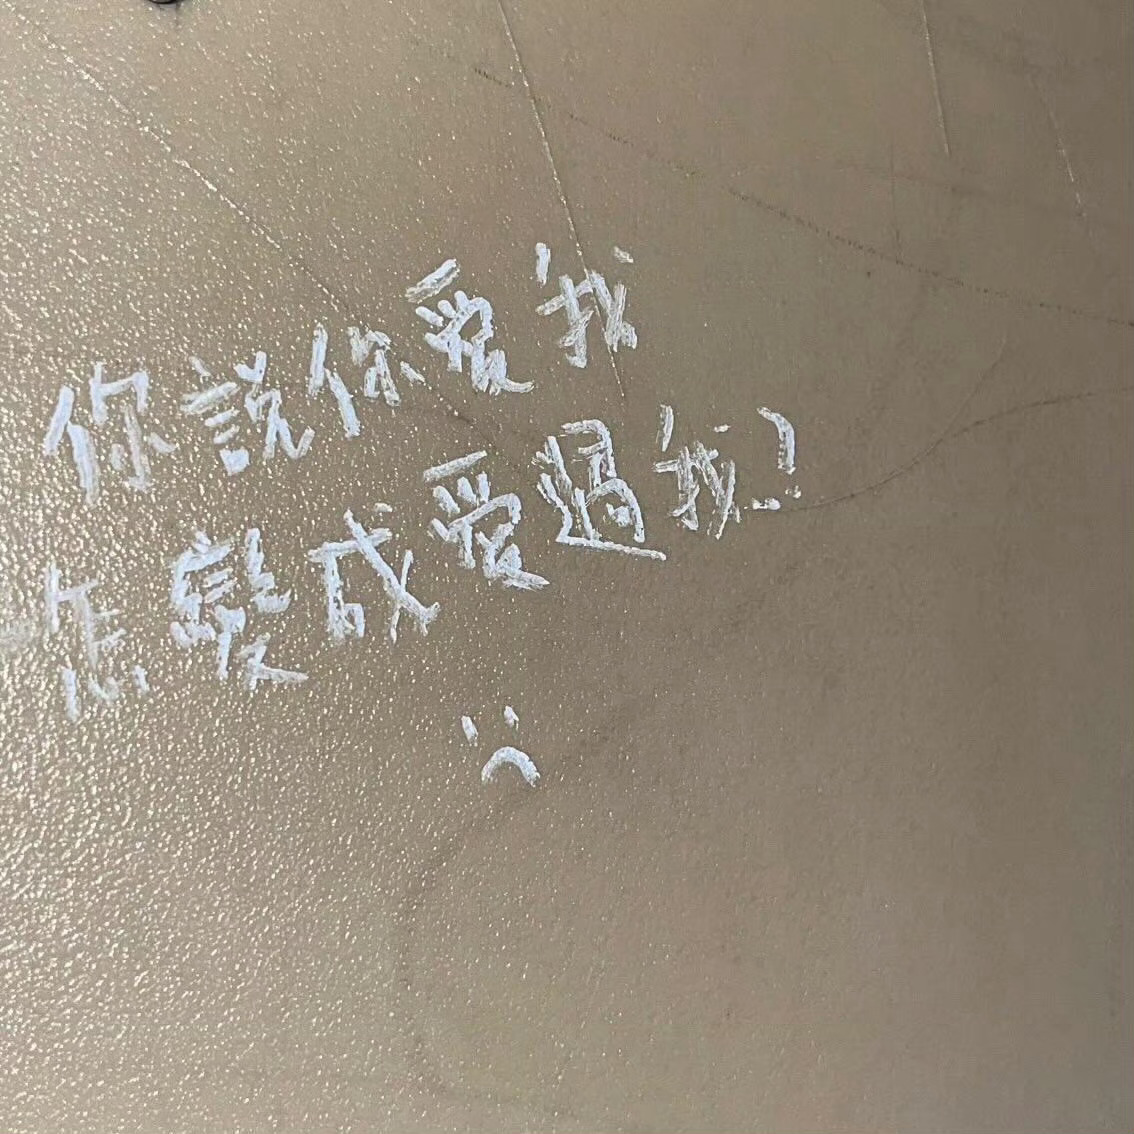 你說你愛我
怎變成愛過我?
:(